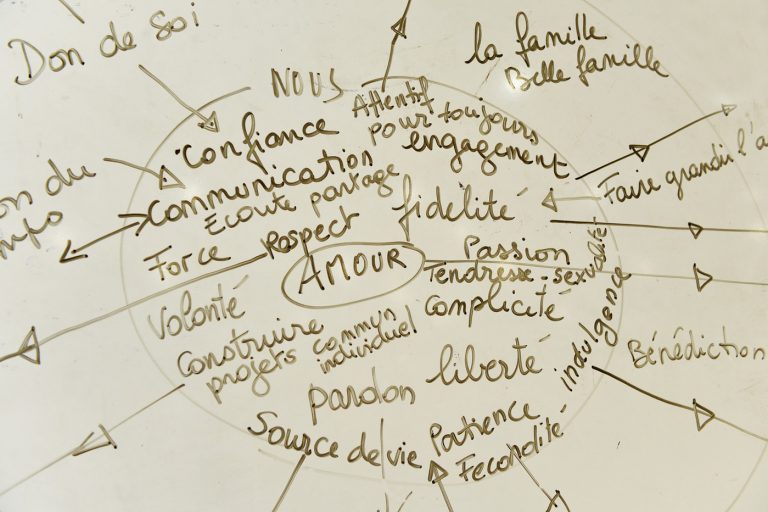 Don de Soi
NOUS
la famille
Belle famille
Attentif
pour toujours
engagement
Confiance
Communication
Ecoute partage
fidélité
Faire grandir l'a
Force
Respect
AMOUR
Passion
Tendresse - sexualité
Complicité
indulgence
Volonté
Construire
projets commun
individuel
pardon
liberté
Bénédiction
Source de vie
Patience
Fecondité